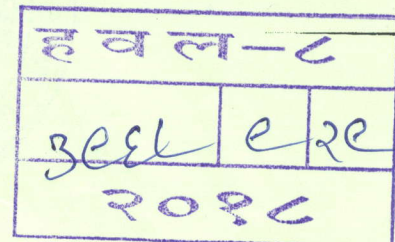 हवल-८
३९६५ ९ २९
२०१८